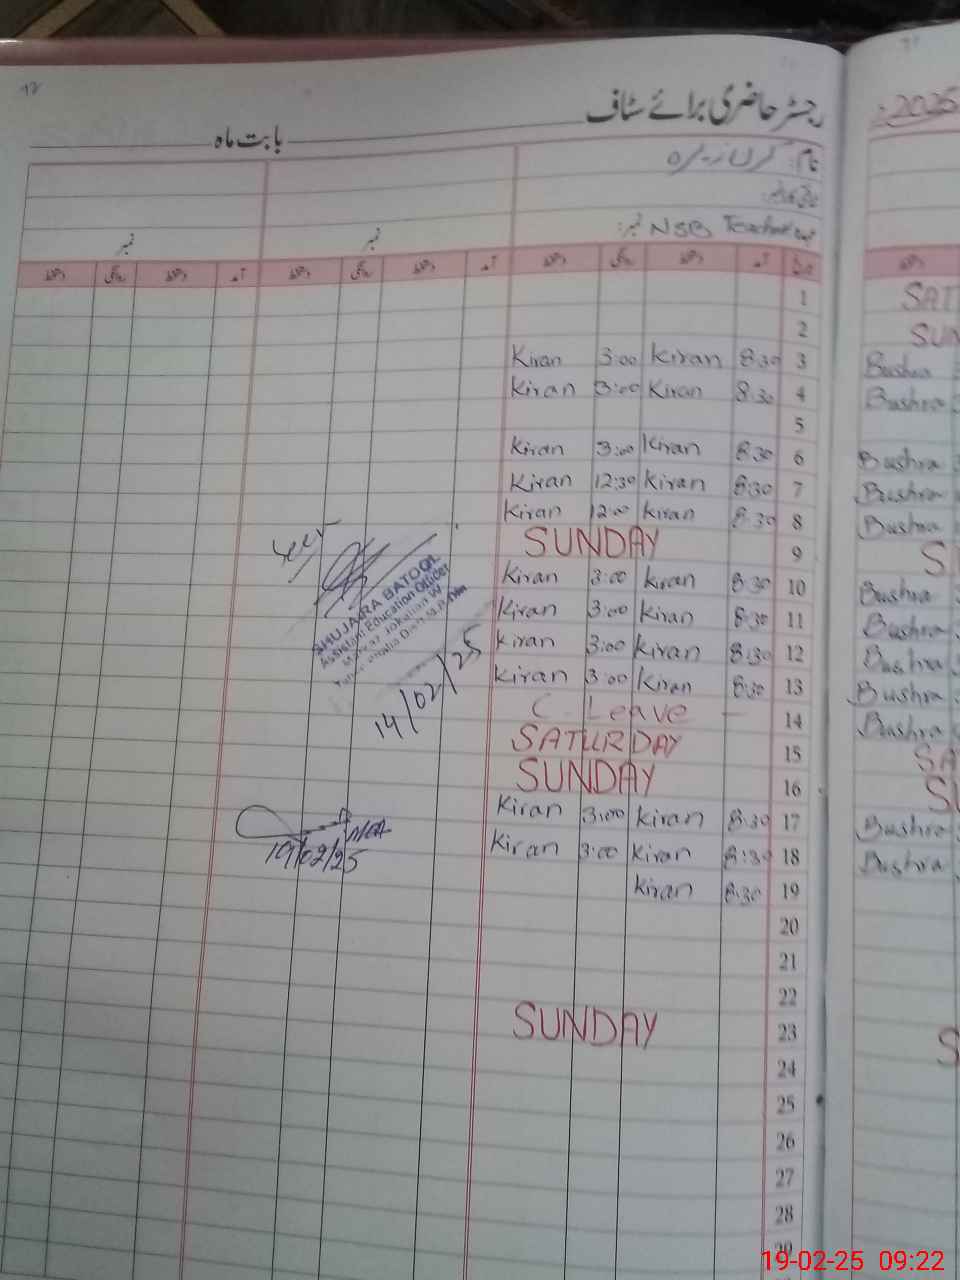 رجسٹر حاضری برائے سٹاف
بابت ماہ
2025
نام:
عہدہ:
نمبر: NSB Teacher
نمبر
نمبر
تاریخ آمد دستخط روانگی دستخط آمد دستخط روانگی دستخط آمد دستخط روانگی دستخط
1
2
Kiran 3:00 Kiran 8:30 3
Kiran 3:00 Kiran 8:30 4
5
Kiran 3:00 Kiran 8:30 6
Kiran 12:30 Kiran 8:30 7
Kiran 12:00 Kiran 8:30 8
SUNDAY 9
Kiran 3:00 Kiran 8:30 10
Kiran 3:00 Kiran 8:30 11
Kiran 3:00 Kiran 8:30 12
Kiran 3:00 Kiran 8:30 13
C. Leave – 14
SATURDAY 15
SUNDAY 16
Kiran 3:00 Kiran 8:30 17
Kiran 3:00 Kiran 8:30 18
Kiran 8:30 19
20
21
22
SUNDAY 23
24
25
26
27
28
29
SHUJA RA BATOOL
Assistant Education Officer
14/02/25
19/02/25
SAT
SUN
Bushra
Bushra
Bushra
Bushra
Bushra
S
Bushra
Bushra
Bushra
Bushra
Bushra
SA
SU
Bushra
Bushra
S
19-02-25 09:22